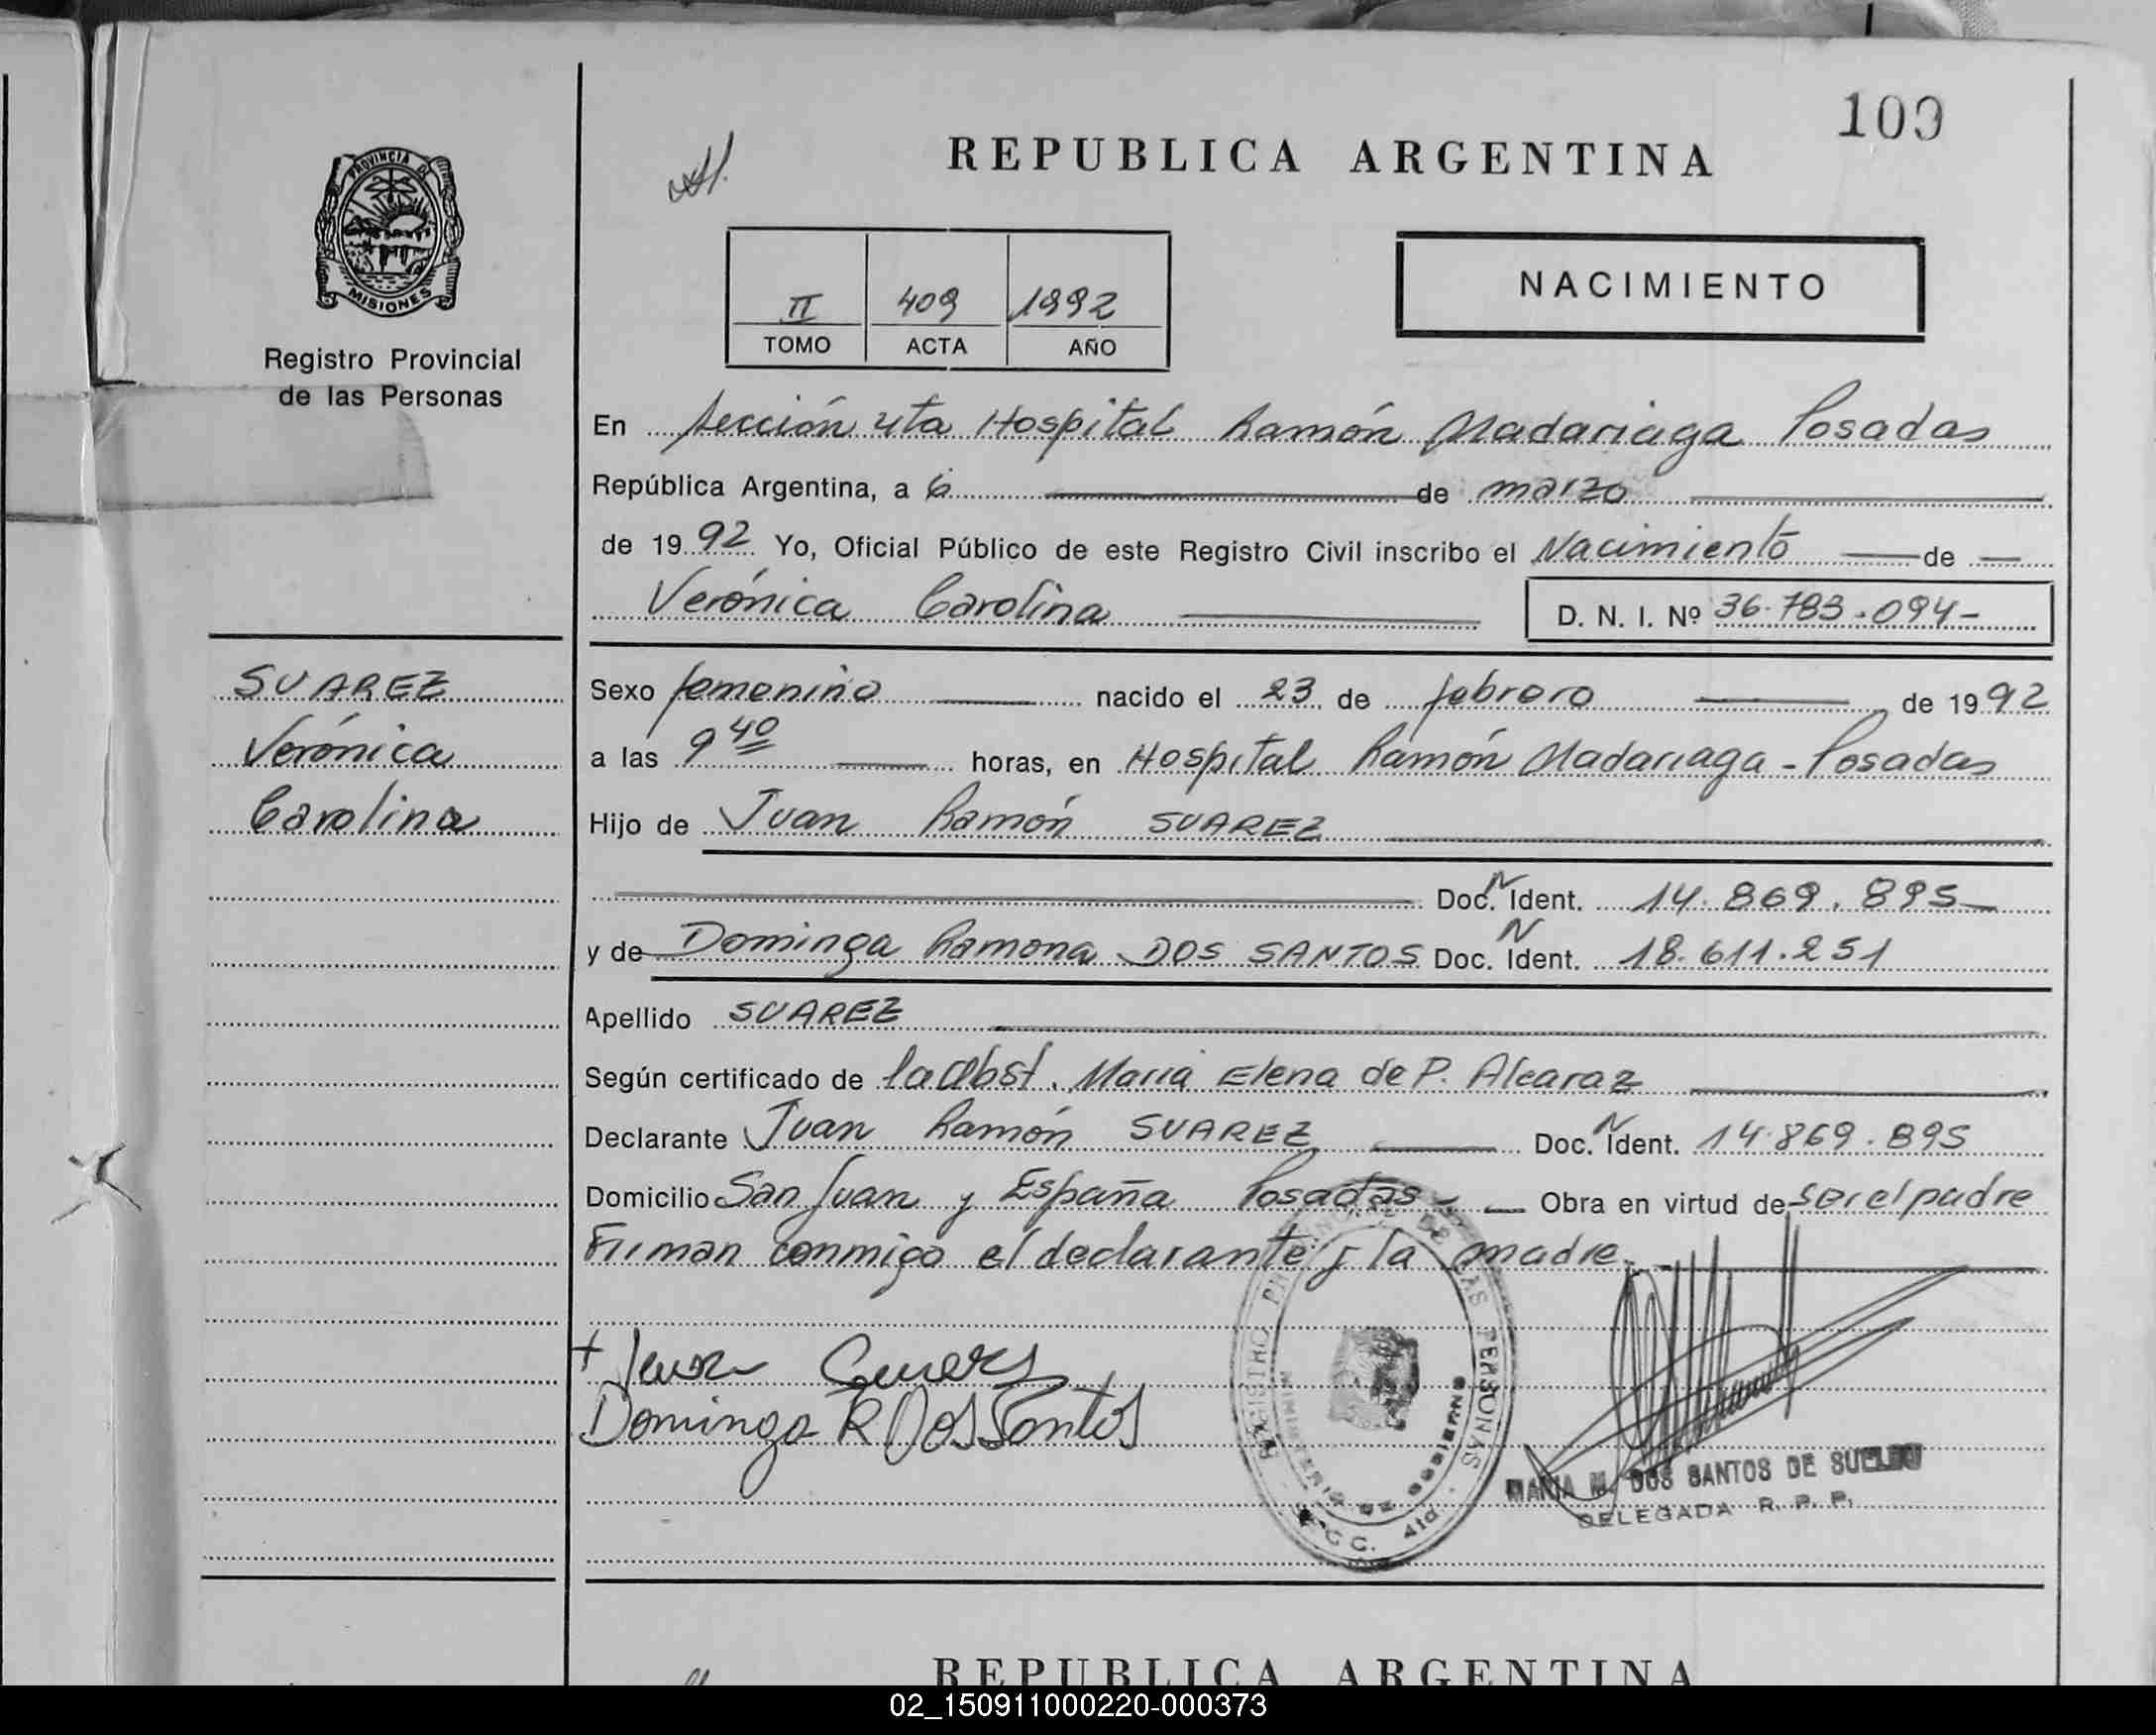 109
REPUBLICA ARGENTINA
PROVINCIA DE
MISIONES
Registro Provincial
de las Personas
II 409 1992
TOMO ACTA AÑO
NACIMIENTO
En Sección 4ta Hospital Ramón Madariaga Posadas
República Argentina, a 6 de marzo
de 1992 Yo, Oficial Público de este Registro Civil inscribo el Nacimiento de
Verónica Carolina D. N. I. Nº 36.783.094-
SUAREZ
Verónica
Carolina
Sexo femenino nacido el 23 de febrero de 1992
a las 9 40 horas, en Hospital Ramón Madariaga - Posadas
Hijo de Juan Ramón SUAREZ
Doc. N Ident. 14.869.895
y de Dominga Ramona DOS SANTOS Doc. N Ident. 18.611.251
Apellido SUAREZ
Según certificado de la Obst. Maria Elena de P. Alcaraz
Declarante Juan Ramón SUAREZ Doc. N Ident. 14.869.895
Domicilio San Juan y España Posadas - Obra en virtud de ser el padre
Firman conmigo el declarante y la madre.
Dominga R Dos Santos
REGISTRO PROVINCIAL DE LAS PERSONAS
MINISTERIO DE GOBIERNO
SECC. 4ta.
MARIA M. DOS SANTOS DE SUELDO
DELEGADA R. P. P.
REPUBLICA ARGENTINA
02_150911000220-000373